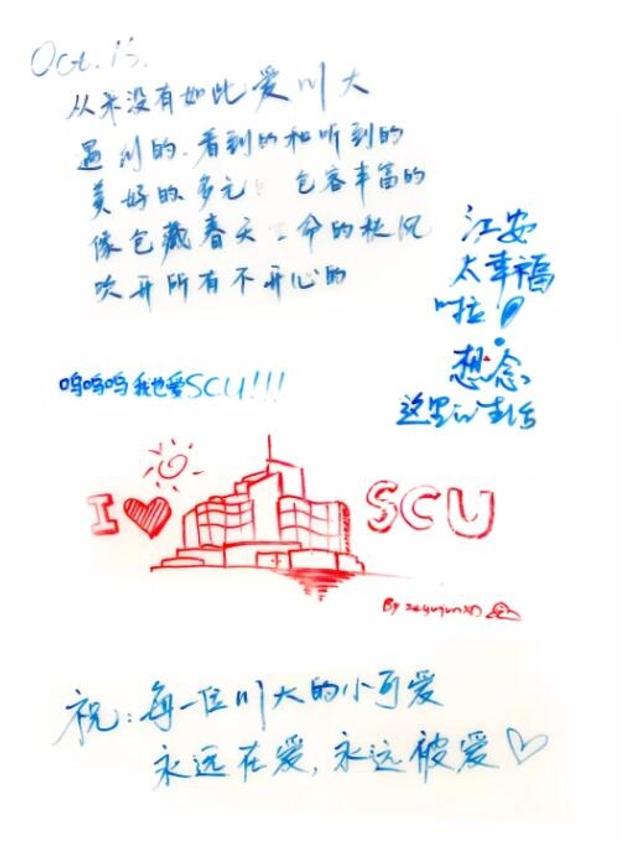 Oct. 15.
从未没有如此爱川大
遇到的、看到的和听到的
美好的、多元 包容丰富的
像包藏春天 命的秋风
吹开所有不开心的
江安
太幸福
啦!
想念
这里的生活
呜呜呜我也爱SCU!!!
I SCU
By
祝:每一位川大的小可爱
永远在爱,永远被爱